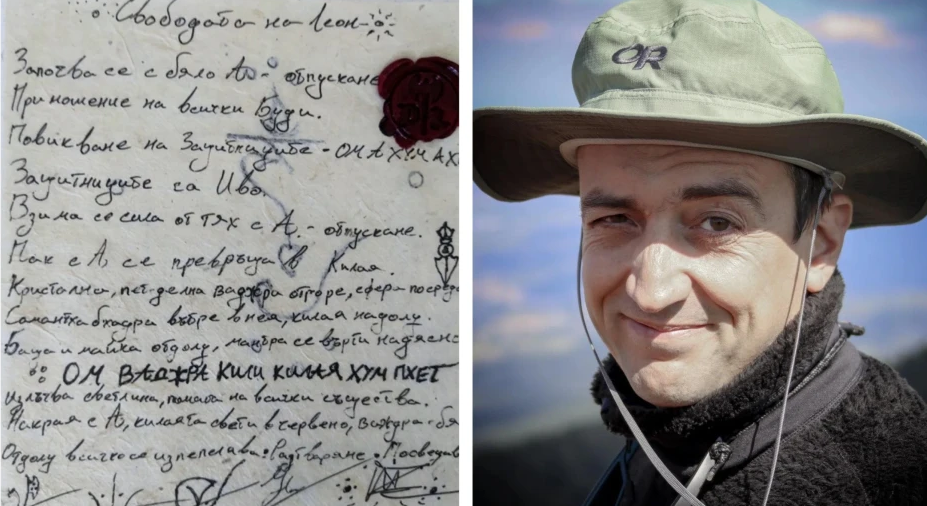 Свободата на Леон
Започва се с бяло А. - отпускане
Приношение на всички Буди.
Повикване на Защитниците - ОМ А ХУМ АХ
Защитниците са Иво.
Взима се сила от тях с А. - отпускане.
Пак с А се превръща в Килая.
Кристална, пет-делна ваджра отгоре, сфера посреда
Самантабхадра вътре в нея, килая надолу.
Баща и майка отдолу, мантра се върти надясно
ОМ ВАДЖРА КИЛИ КИЛАЯ ХУМ ПХЕТ
излъчва светлина, помага на всички същества.
Накрая с А, килаята свети в червено, ваджра - бя
Отдолу всичко се изпепелява.
OR